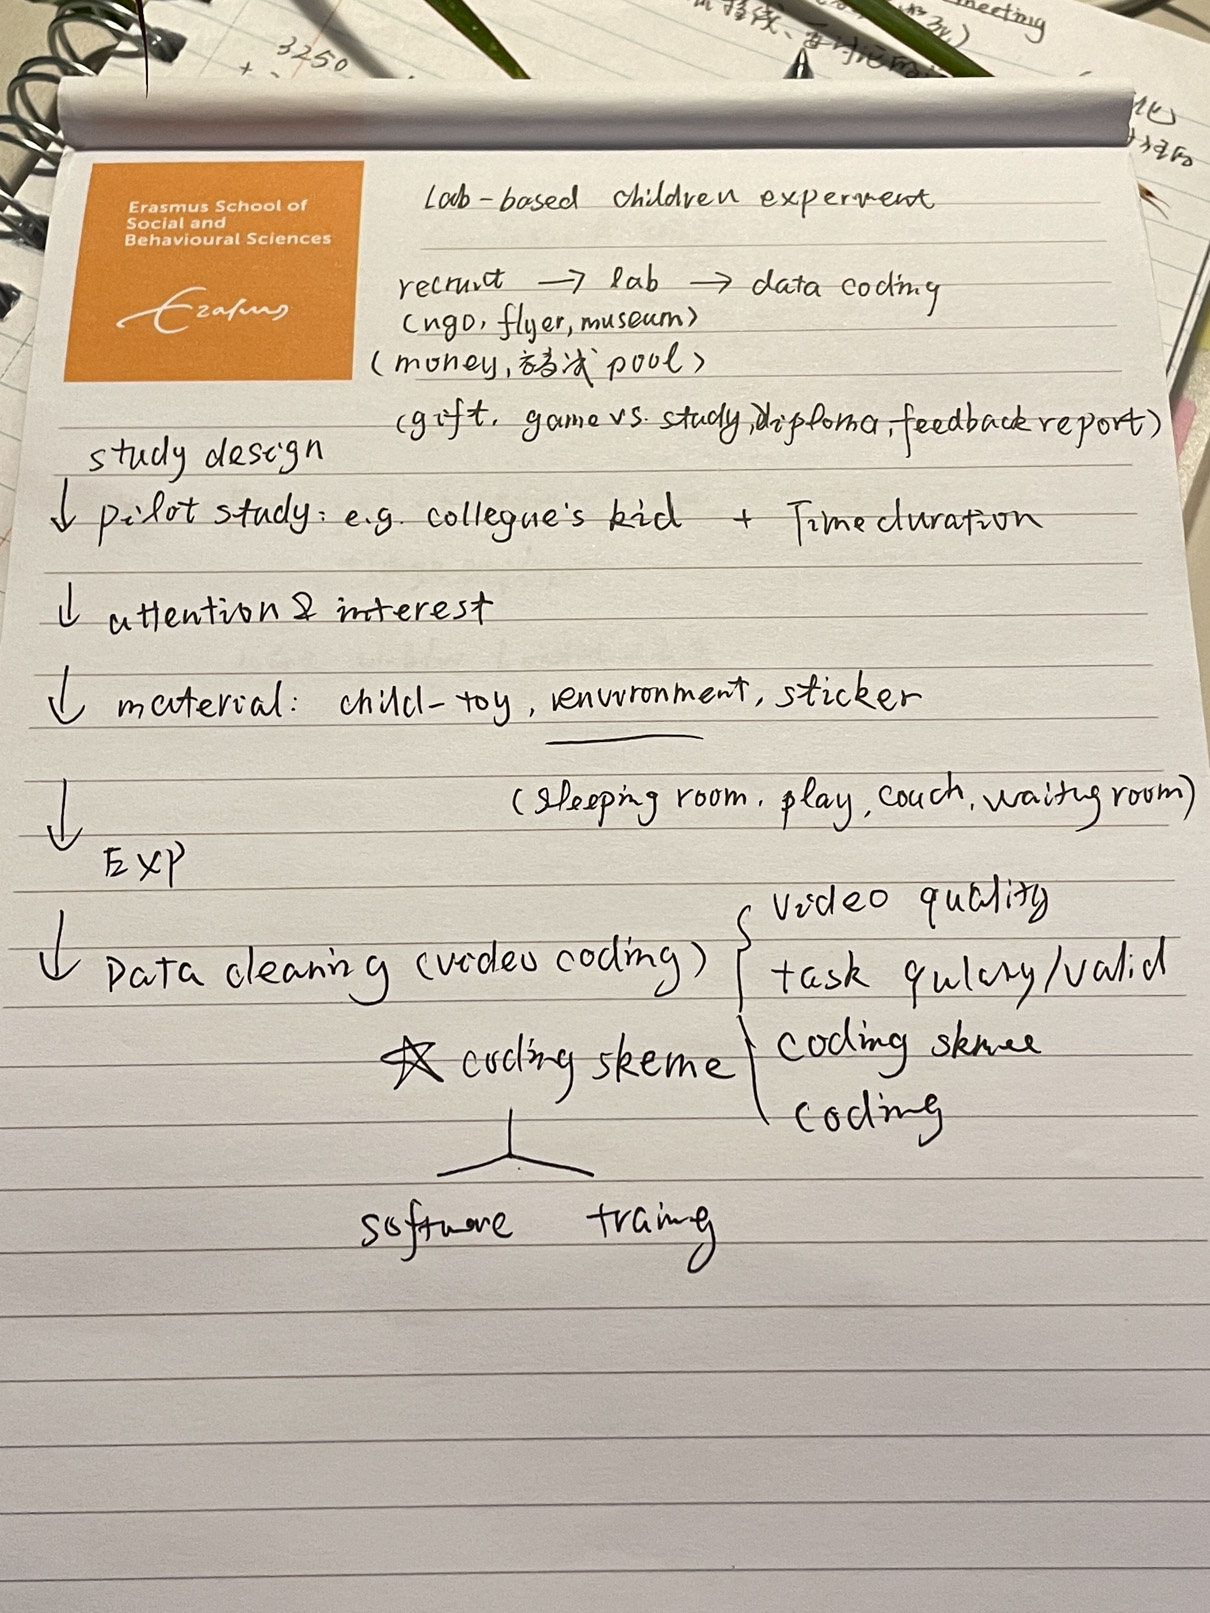 3250
+
meeting
Erasmus School of
Social and
Behavioural Sciences
Erasmus
Lab-based children experment
recruit → lab → data coding
(ngo, flyer, museum)
(money, 被试 pool)
(gift, game vs. study, diploma, feedback report)
study design
↓ pilot study: e.g. collegue's kid + Time duration
↓ attention & interest
↓ material: child-toy, environment, sticker
(sleeping room, play, couch, waitng room)
↓ EXP
↓ Data cleaning (video coding) { video quality
task /valid
☆ coding skeme coding
coding
software traing